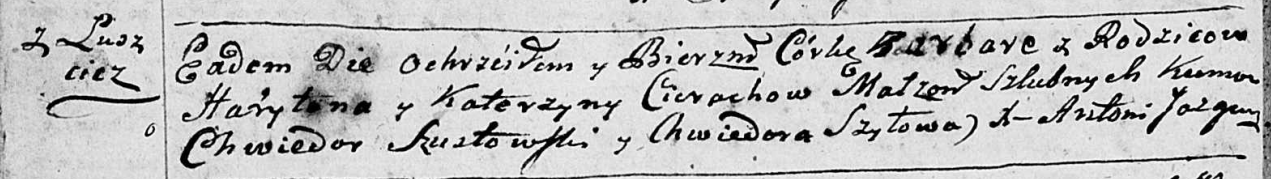 z Lusz
ciez
Eadem Die ochrzciłem y Bierzmł Córkę Barbarę z Rodzicow
Harytona y Katerzyny Cierachow Małżonł Szlubnych Kumow
Chwiedor Szustowski y Chwiedora Szyłowa) X Antoni